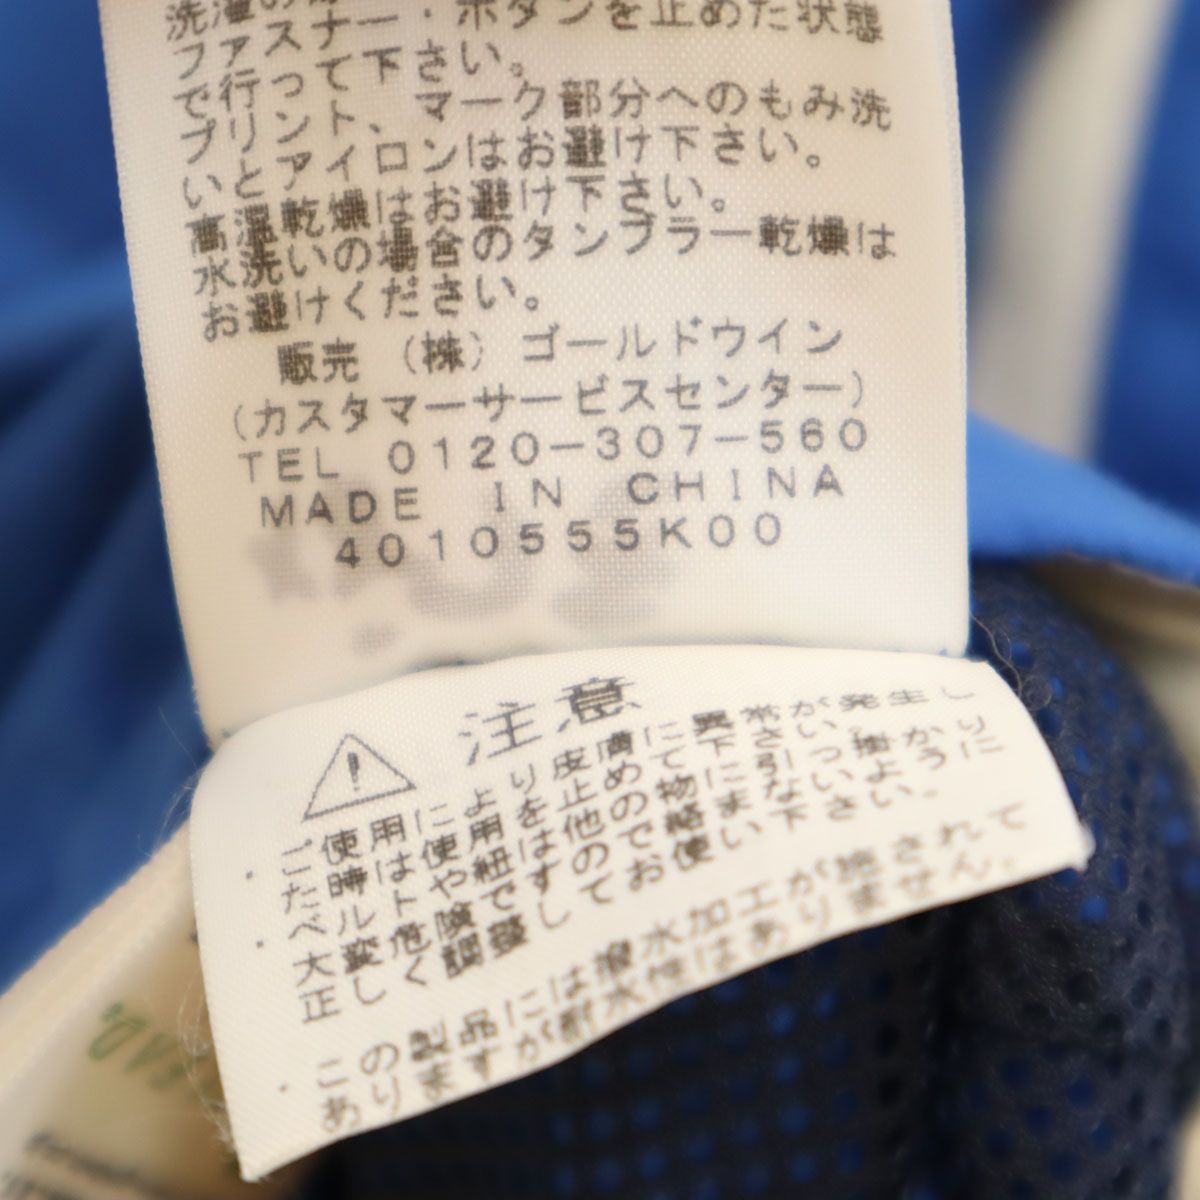 ファスナー・ボタンを止めた状態
で行って下さい。
プリント、マーク部分へのもみ洗
いとアイロンはお避け下さい。
高温乾燥はお避け下さい。
水洗いの場合のタンブラー乾燥は
お避けください。
販売 (株) ゴールドウイン
(カスタマーサービスセンター)
TEL 0120-307-560
MADE IN CHINA
4010555K00
注意
・ご使用により皮膚に異常が発生し
た時は使用を止めて下さい。
・ベルトや紐は他の物に引っ掛かり
大変危険ですので絡まない様に
正しく調整してお使い下さい。
・この製品には撥水加工が施されて
ありますが耐水性はありません。